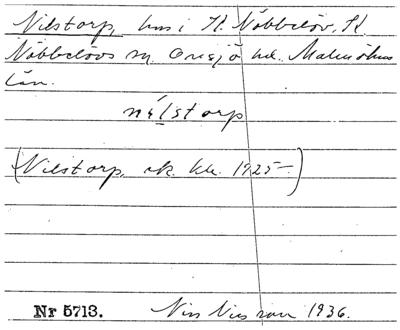 Nilstorp, hus i K. Nöbbelöv, K.
Nöbbelövs sn. Onsjö hd. Malmöhus
län.
nilstorp
(Nilstorp, ek. kbl. 1925–)
Nr 5713. Nils Nilsson 1936.